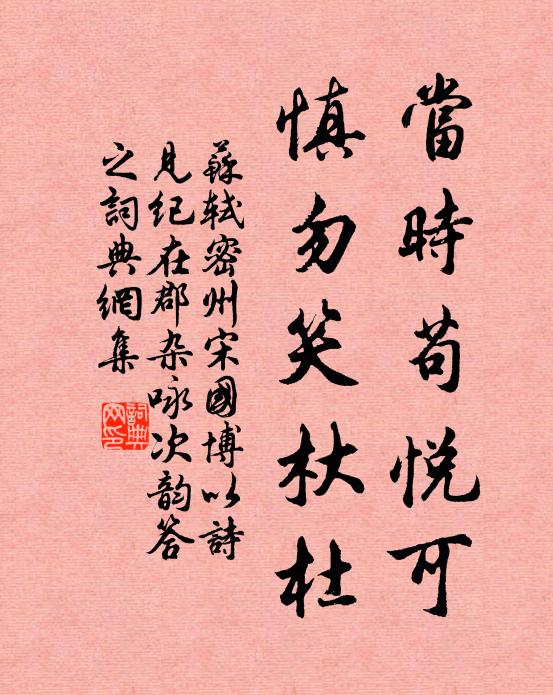 當時苟悅可
慎勿笑杕杜
蘇軾密州宋國博以詩
見紀在郡杂咏次韵答
之詞典網集
詞典
网印